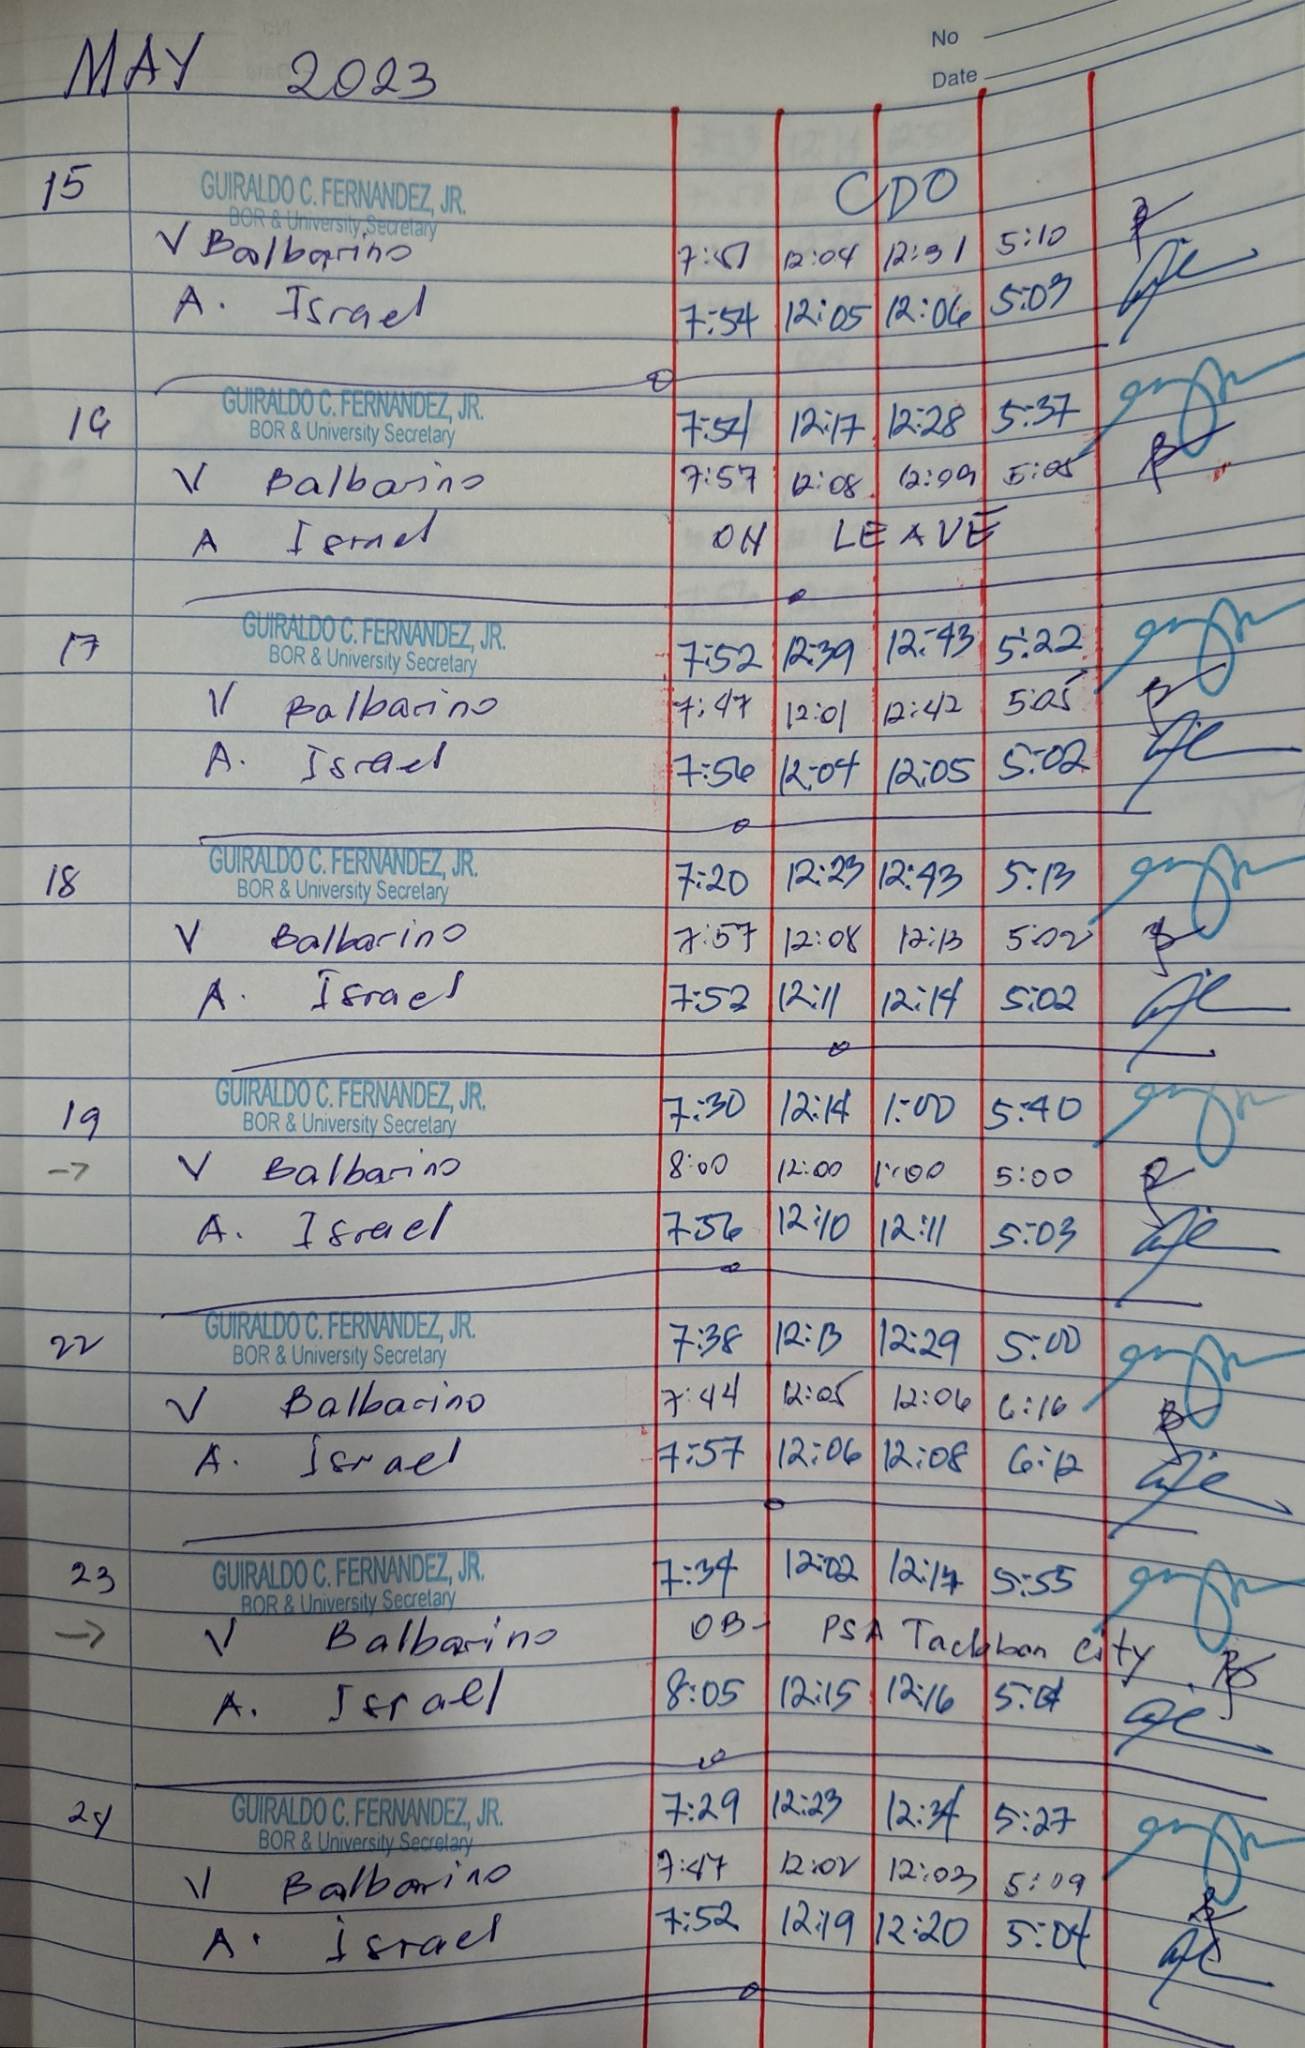 No
Date
MAY 2023
15 GUIRALDO C. FERNANDEZ, JR. CDO
BOR & University Secretary
V Balbarino 7:51 12:04 12:31 5:10
A. Israel 7:54 12:05 12:06 5:03
16 GUIRALDO C. FERNANDEZ, JR. 7:54 12:17 12:28 5:37
BOR & University Secretary
V Balbarino 7:57 12:08 12:09 5:05
A Israel ON LEAVE
17 GUIRALDO C. FERNANDEZ, JR. 7:52 12:39 12:43 5:22
BOR & University Secretary
V Balbarino 7:47 12:01 12:42 5:05
A. Israel 7:56 12:04 12:05 5:02
18 GUIRALDO C. FERNANDEZ, JR. 7:20 12:23 12:43 5:13
BOR & University Secretary
V Balbarino 7:57 12:08 12:13 5:02
A. Israel 7:52 12:11 12:14 5:02
19 GUIRALDO C. FERNANDEZ, JR. 7:30 12:14 1:00 5:40
BOR & University Secretary
→ V Balbarino 8:00 12:00 1:00 5:00
A. Israel 7:56 12:10 12:11 5:03
22 GUIRALDO C. FERNANDEZ, JR. 7:38 12:13 12:29 5:00
BOR & University Secretary
V Balbarino 7:44 12:05 12:06 6:16
A. Israel 7:57 12:06 12:08 6:12
23 GUIRALDO C. FERNANDEZ, JR. 7:34 12:02 12:14 5:55
BOR & University Secretary
→ V Balbarino OB - PSA Tacloban City
A. Israel 8:05 12:15 12:16 5:04
24 GUIRALDO C. FERNANDEZ, JR. 7:29 12:23 12:34 5:27
BOR & University Secretary
V Balbarino 7:47 12:02 12:03 5:09
A. Israel 7:52 12:19 12:20 5:04